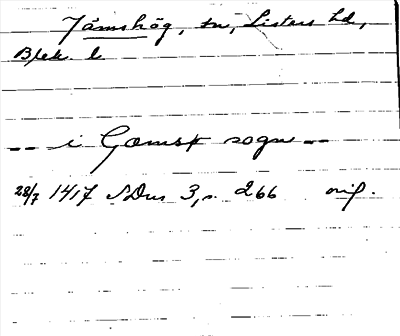 Jämshög, sn, Listers hd,
Blek. l
-- i Gæmsø sogn --
28/7 1417 SDns 3, s. 266 orig.